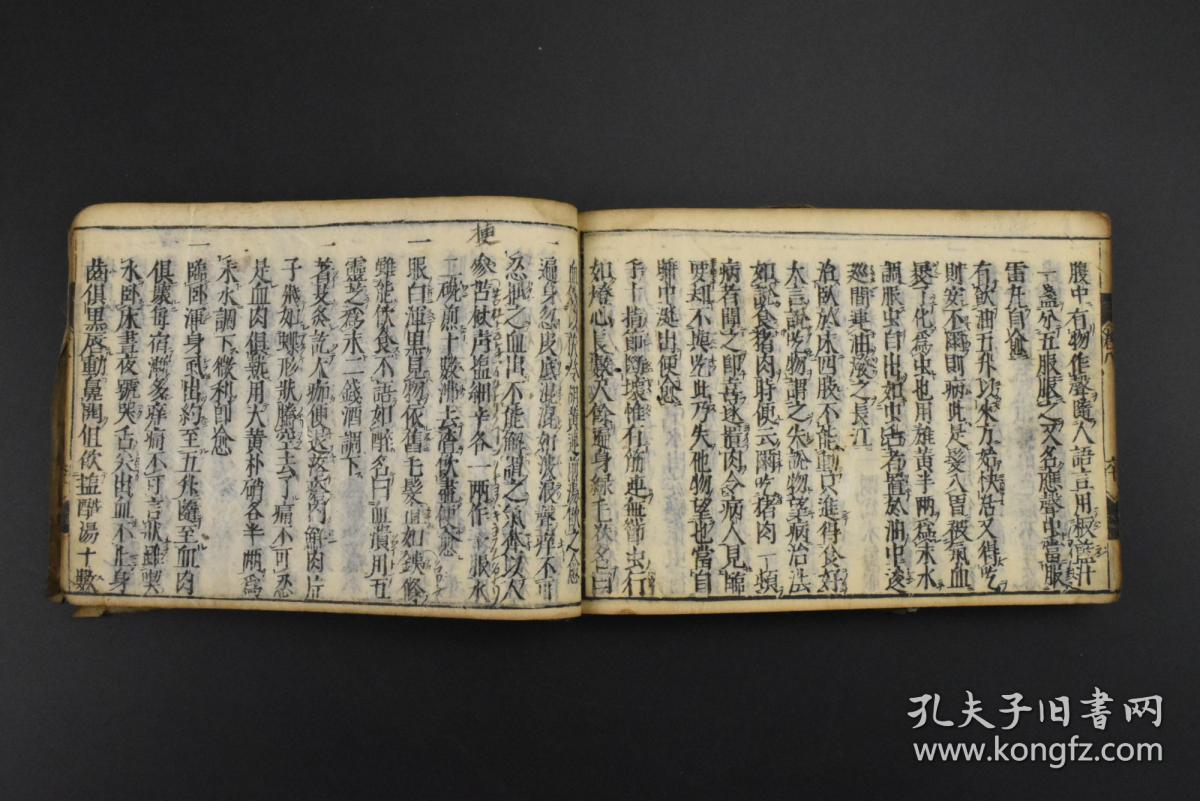 腹中有物作聲隨人語言用板藍汁
一盞分五服服之又名應聲虫當服
雷丸自愈
有飲油五升以來方始快活又得吃
則安不爾則病此是髮入胃被氣血
裹了化爲虫也用雄黃半兩爲末水
調服虫自出如虫活者置於油中逡
巡間連油潑之長江
治臥於床四肢不能動只進得食好
大言說吃物謂之失說物望病治法
如說食猪肉時便云爾吃猪肉一頓
病者聞之即喜遂置肉令病人見臨
要却不與吃此乃失他物望也當自
睡中涎出便愈
手十指節斷壞惟有筋連無節虫行
如燈心長數尺餘遍身綠毛次名曰
飲之愈
一遍身忽皮底混混如波浪聲痒不可
忍抓之血出不能解謂之氣奔以人
參苦杖青塩細辛各一兩作一服水
二碗煎十數沸去渣飲盡便愈
一眼白渾黑見物依舊毛髮直如鉄條
雖能飲食不語如醉名曰血潰用五
靈芝爲末二錢酒調下
一著艾灸訖火痂便退落瘡內鮮肉片
子飛如蝶形狀騰空去了痛不可忍
是血肉俱熱用大黃朴硝各半兩爲
末水調下微利即愈
一臨臥渾身虱出約至五升隨至血肉
俱壞每宿漸多痒痛不可言狀雖喫
水臥床晝夜號哭舌尖出血不止身
齒俱黑唇動鼻開但飲塩醋湯十數
梗
孔夫子旧书网
www.kongfz.com